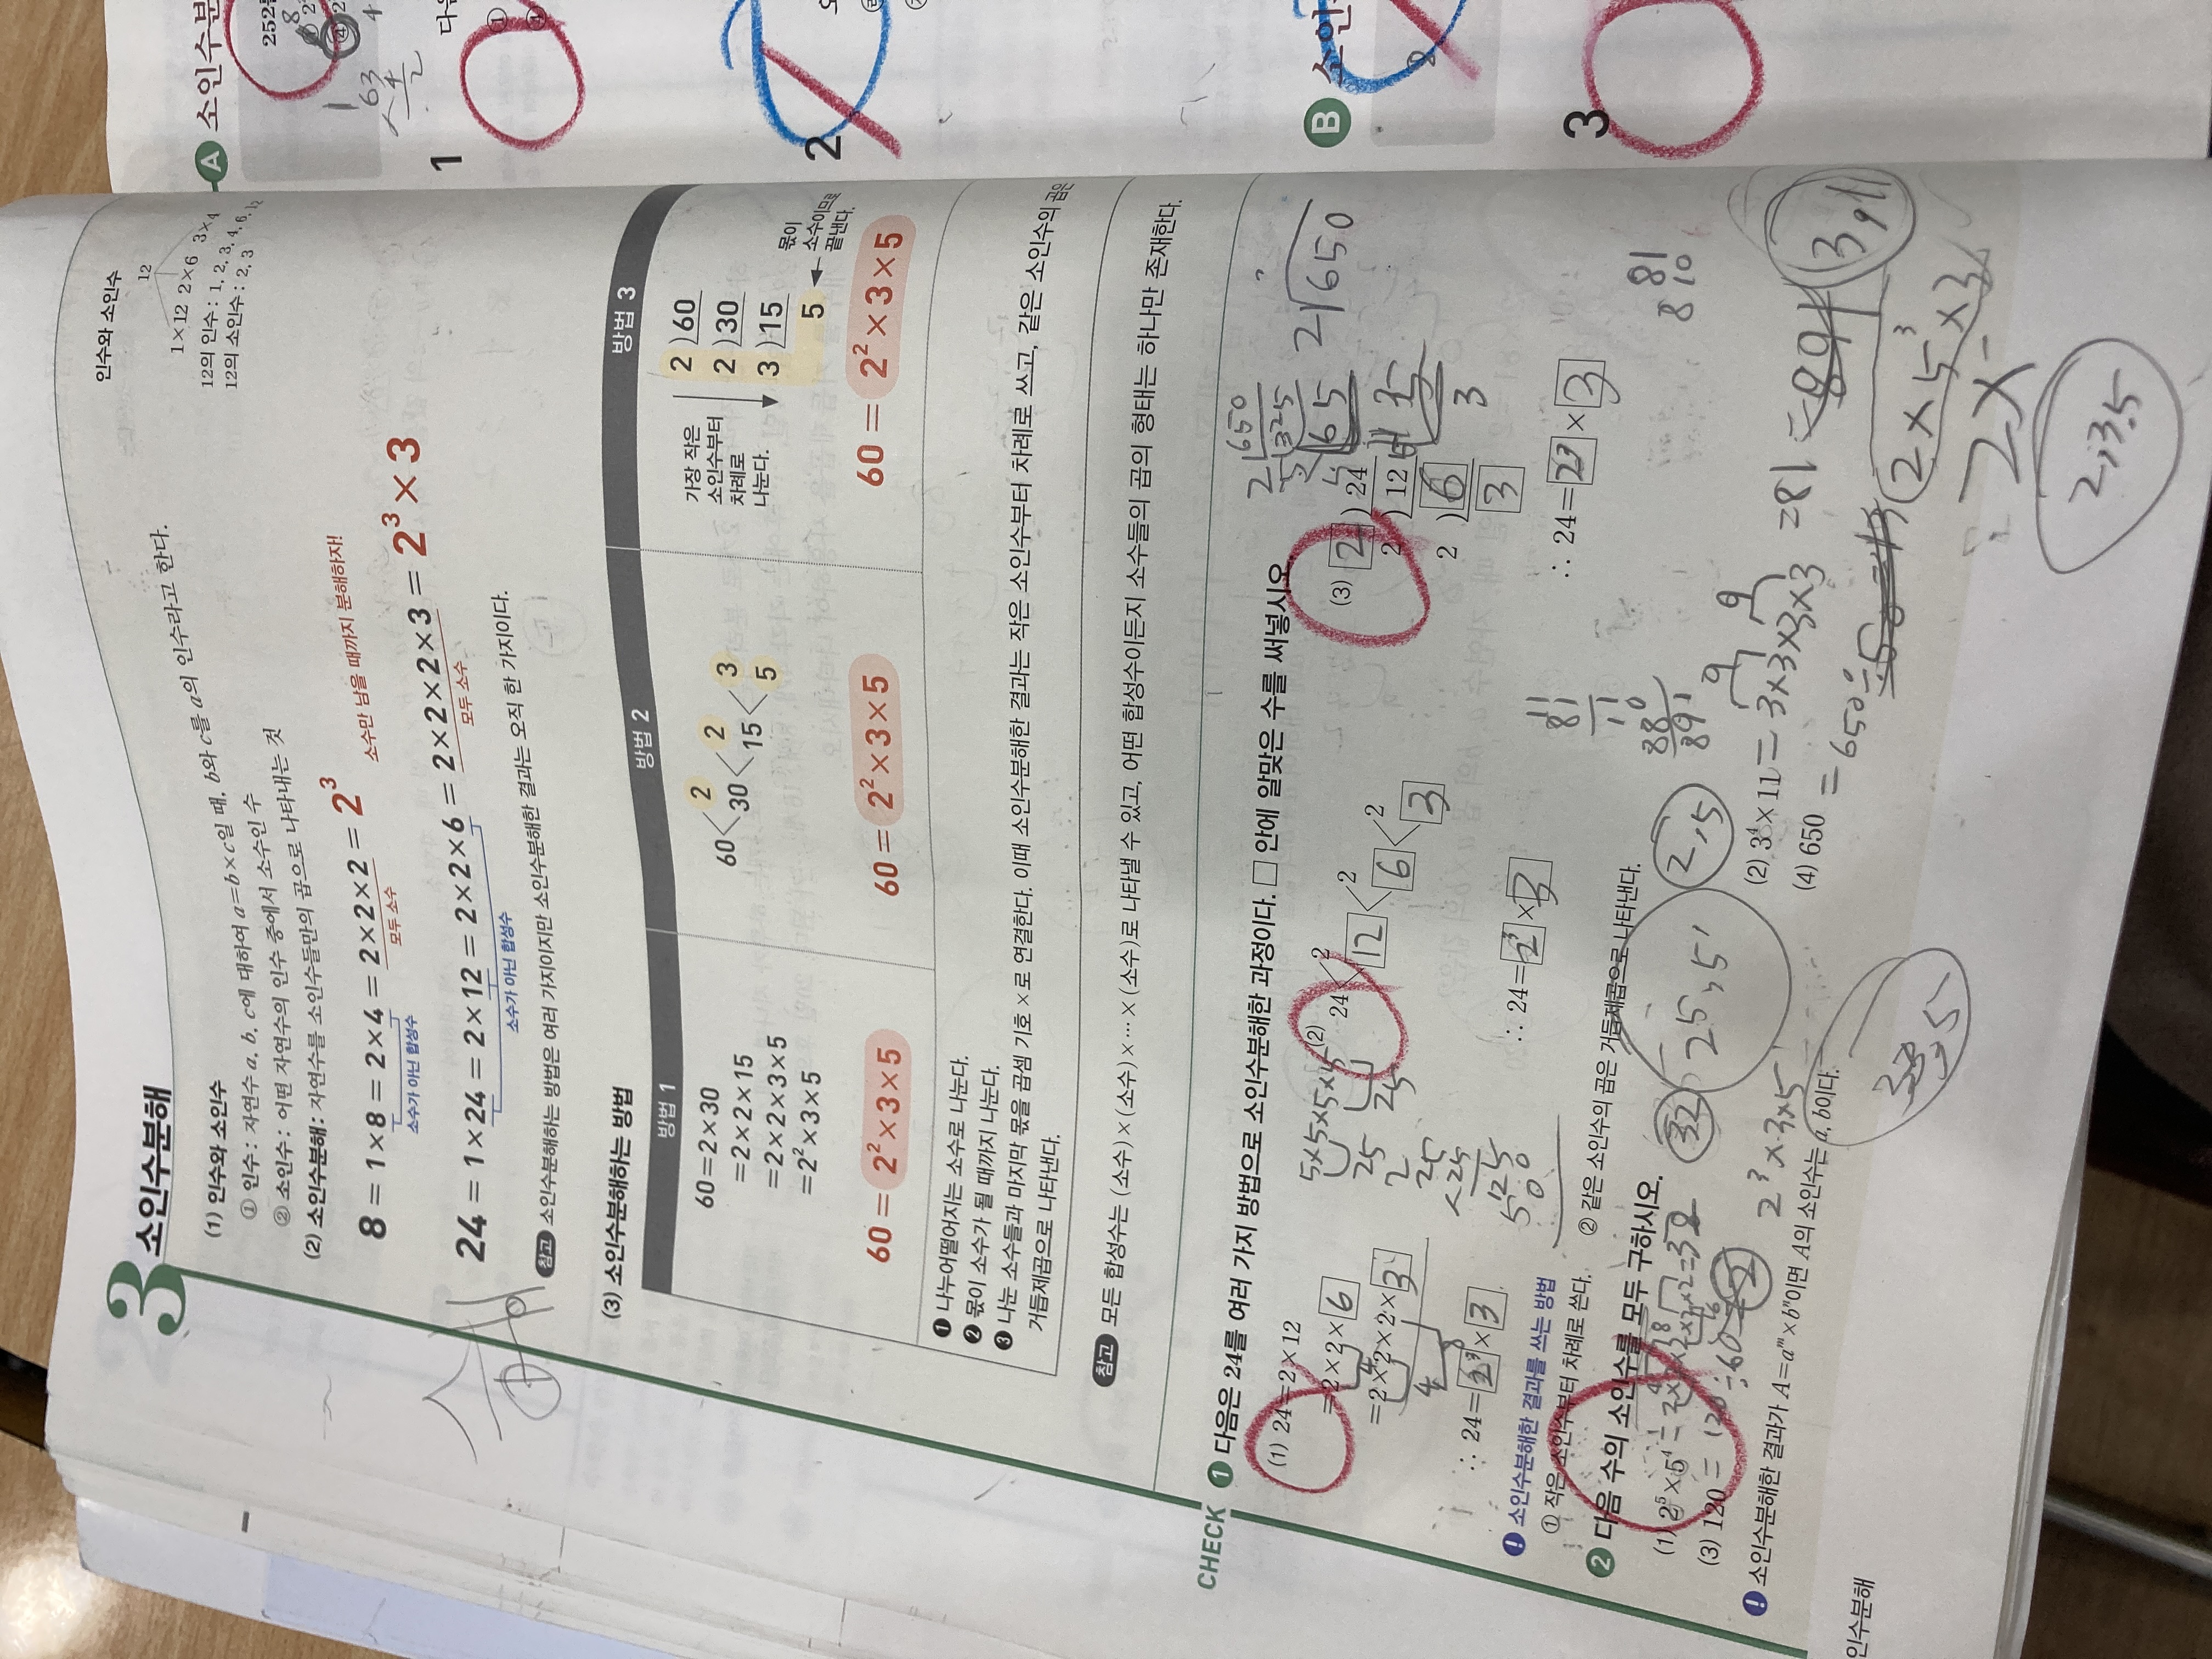 3 소인수분해
(1) 인수와 소인수
① 인수 : 자연수 a, b, c에 대하여 a=b×c일 때, b와 c를 a의 인수라고 한다.
② 소인수 : 어떤 자연수의 인수 중에서 소수인 수
(2) 소인수분해 : 자연수를 소인수들만의 곱으로 나타내는 것
인수와 소인수
12
1×12 2×6 3×4
12의 인수 : 1, 2, 3, 4, 6, 12
12의 소인수 : 2, 3
8 = 1×8 = 2×4 = 2×2×2 = 2³
소수가 아닌 합성수
모두 소수
소수만 남을 때까지 분해하자!
24 = 1×24 = 2×12 = 2×2×6 = 2×2×2×3 = 2³×3
소수가 아닌 합성수
모두 소수
참고 소인수분해하는 방법은 여러 가지이지만 소인수분해한 결과는 오직 한 가지이다.
(3) 소인수분해하는 방법
방법 1
60=2×30
=2×2×15
=2×2×3×5
=2²×3×5
60 = 2²×3×5
방법 2
60 2
30 2
15 3
5
60 = 2²×3×5
방법 3
가장 작은
소인수부터
차례로
나눈다.
2 ) 60
2 ) 30
3 ) 15
5
몫이
소수이므로
끝낸다.
60 = 2²×3×5
❶ 나누어떨어지는 소수로 나눈다.
❷ 몫이 소수가 될 때까지 나눈다.
❸ 나눈 소수들과 마지막 몫을 곱셈 기호 ×로 연결한다. 이때 소인수분해한 결과는 작은 소인수부터 차례로 쓰고, 같은 소인수의 곱은
거듭제곱으로 나타낸다.
참고 모든 합성수는 (소수)×(소수)×⋯×(소수)로 나타낼 수 있고, 어떤 합성수이든지 소수들의 곱의 형태는 하나만 존재한다.
CHECK
1 다음은 24를 여러 가지 방법으로 소인수분해한 과정이다. □ 안에 알맞은 수를 써넣시오.
(1) 24=2×12
=2×2×6
=2×2×2×3
∴ 24=2³×3
5×5×5×5
25 25
(2) 24 2
12 2
6 2
3
∴ 24=2³×3
(3) 2 ) 24
2 ) 12
2 ) 6
3
∴ 24=2³×3
2 650
325
65
2 650
! 소인수분해한 결과를 쓰는 방법
① 작은 소인수부터 차례로 쓴다.
② 같은 소인수의 곱은 거듭제곱으로 나타낸다.
2 다음 수의 소인수를 모두 구하시오.
(1) 2⁵×5⁴
32
25,5
2,5
(2) 3⁴×11 =3×3×3×3 =81
891
3,11
(3) 120 = 120÷60
2
2³×3×5
(4) 650 = 650÷
2×5³×3
2×
2,3,5
! 소인수분해한 결과가 A=aᵐ×bⁿ이면 A의 소인수는 a, b이다.
인수분해
A 소인수분
252
1
63
다음
2
B 소인
3